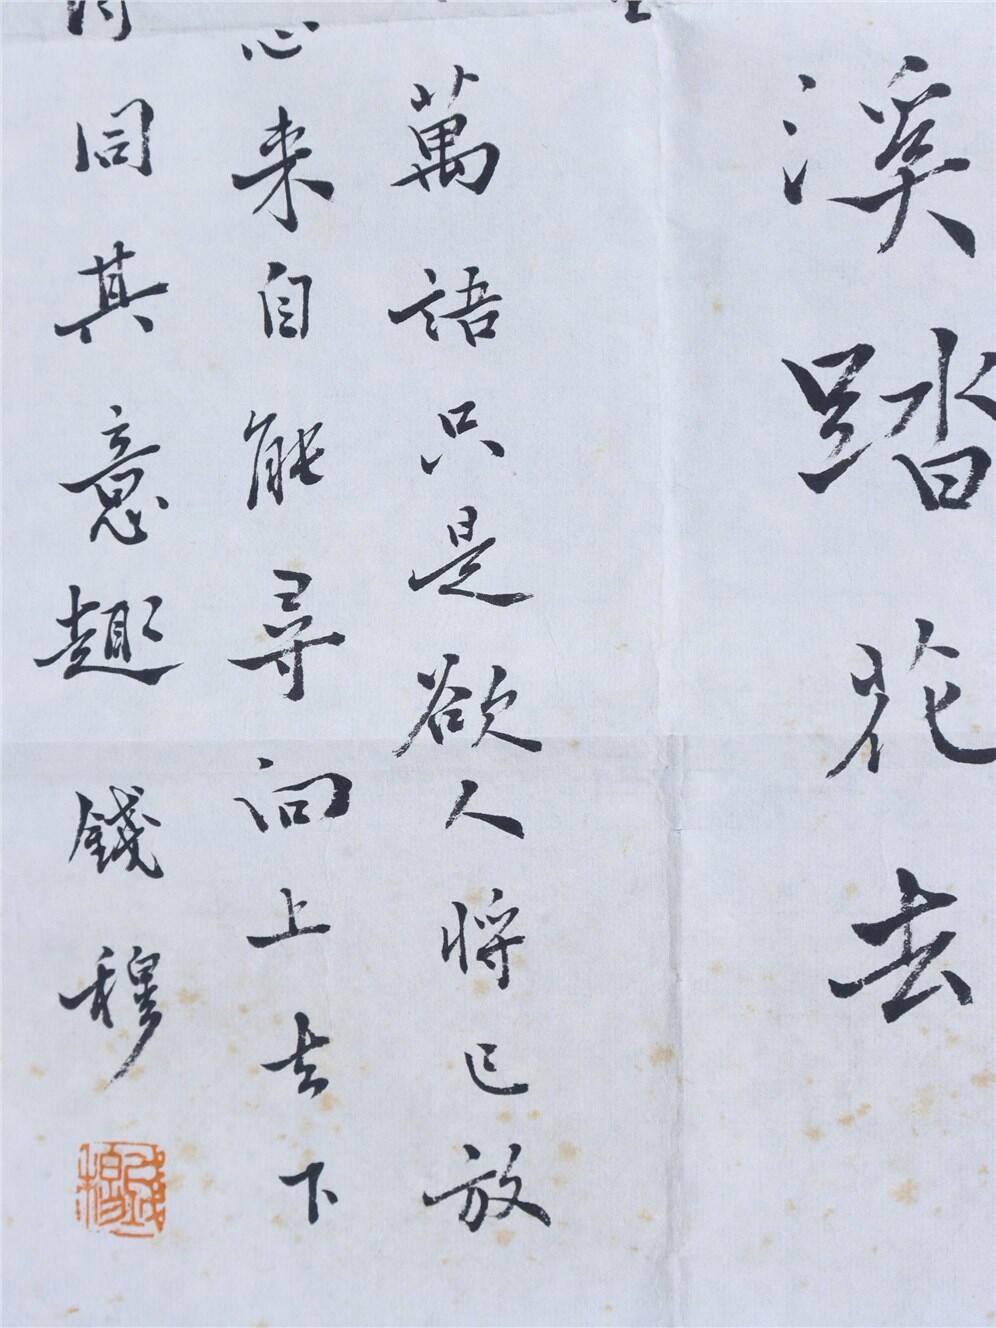 溪踏花去
萬語只是欲人將已放
心来自能尋向上去下
同其意趣 錢穆
錢穆